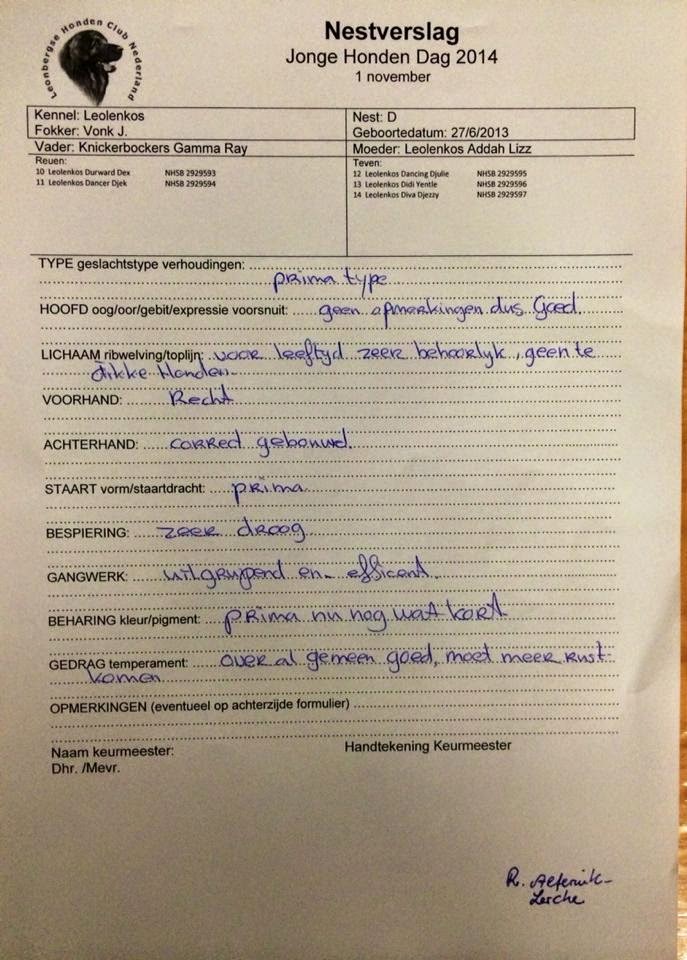 Leonbergse Honden Club Nederland
Nestverslag
Jonge Honden Dag 2014
1 november
Kennel: Leolenkos
Fokker: Vonk J.
Nest: D
Geboortedatum: 27/6/2013
Vader: Knickerbockers Gamma Ray
Moeder: Leolenkos Addah Lizz
Reuen:
10 Leolenkos Durward Dex NHSB 2929593
11 Leolenkos Dancer Djek NHSB 2929594
Teven:
12 Leolenkos Dancing Djulie NHSB 2929595
13 Leolenkos Didi Yentle NHSB 2929596
14 Leolenkos Diva Djezzy NHSB 2929597
TYPE geslachtstype verhoudingen:
prima type
HOOFD oog/oor/gebit/expressie voorsnuit: geen opmerkingen dus Goed.
LICHAAM ribwelving/toplijn: voor leeftyd zeer behoorlyk, geen te
dikke Honden.
VOORHAND: Recht
ACHTERHAND: correct gebouwd.
STAART vorm/staartdracht: prima
BESPIERING: zeer droog
GANGWERK: uitgrypend en efficent
BEHARING kleur/pigment: prima nu nog wat kort
GEDRAG temperament: over al gemeen goed, moet meer rust
komen
OPMERKINGEN (eventueel op achterzijde formulier)
Naam keurmeester:
Dhr. /Mevr.
Handtekening Keurmeester
R.
Lerche